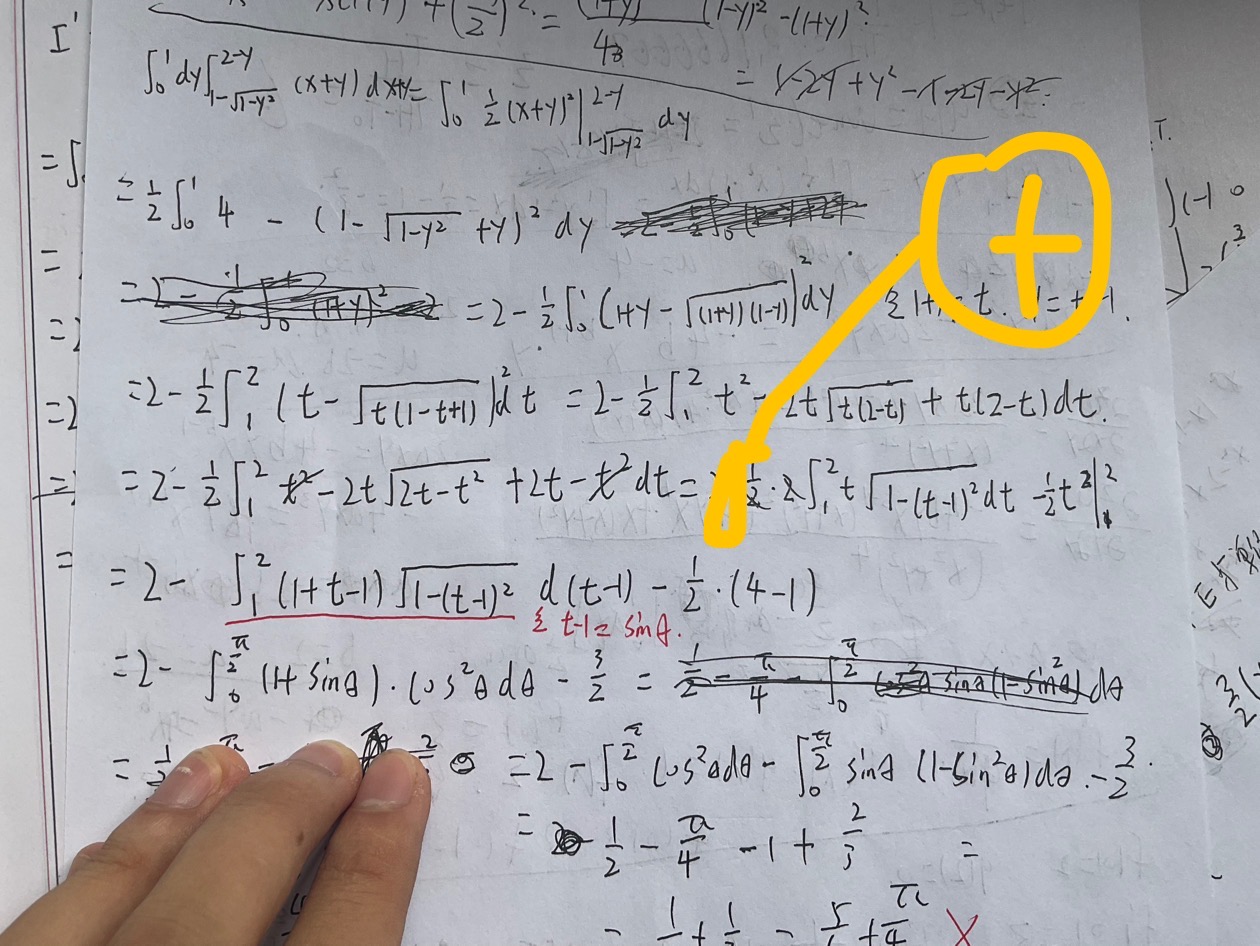 I'
x(1+y) + (1/2)² = (1+y) (1-y)² -(1+y)²
4
= 1-2y+y² -1-2y-y².
∫₀¹dy∫_{1-√(1-y²)}^{2-y} (x+y) dx = ∫₀¹ ½(x+y)²|_{1-√(1-y²)}^{2-y} dy
= ½∫₀¹ 4 - (1-√(1-y²)+y)² dy
= 2-½∫₀¹(1+y-√((1+y)(1-y)))²dy
=2-½∫₁²(t-√(t(1-t+1)))²dt = 2-½∫₁² t²-2t√(t(2-t)) + t(2-t)dt.
=2-½∫₁² t²-2t√(2t-t²) +2t-t²dt = ½·2∫₁²t√(1-(t-1)²)dt -½t²|₁²
+
= 2- ∫₁²(1+t-1)√(1-(t-1)²) d(t-1) -½·(4-1)
令 t-1=sinθ.
=2- ∫₀^{π/2}(1+sinθ)·cos²θdθ - 3/2 = ½-π/4 - ∫₀^{π/2} sinθ(1-sin²θ)dθ
=2-∫₀^{π/2}cos²θdθ-∫₀^{π/2}sinθ(1-sin²θ)dθ-3/2.
= ½-π/4-1+2/3 =